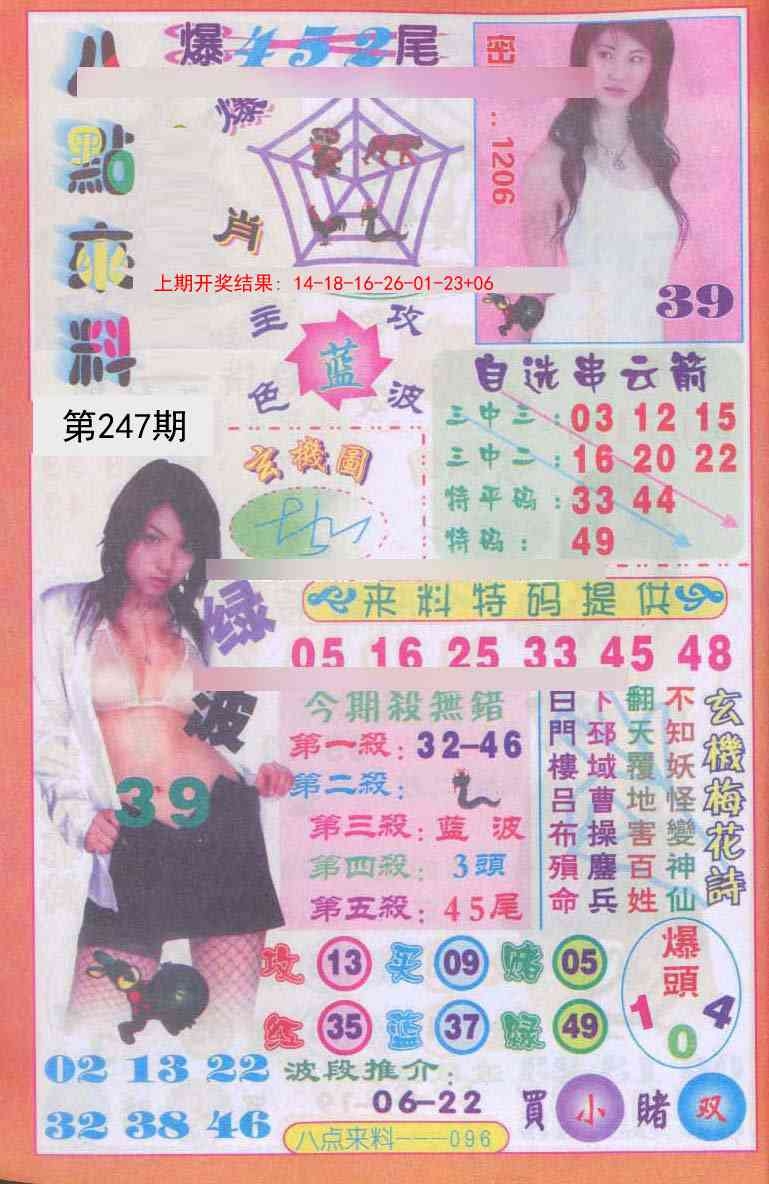 八點來料
爆452尾
爆肖
密
1206
39
上期开奖结果：14-18-16-26-01-23+06
主攻
蓝
色波
第247期
自选串云箭
三中三：03 12 15
三中二：16 20 22
特平码：33 44
特码：49
玄機圖
来料特码提供
05 16 25 33 45 48
绿波
39
今期殺無錯
第一殺：32-46
第二殺：
第三殺：蓝波
第四殺：3頭
第五殺：45尾
玄機梅花詩
不知妖怪變神仙
翻天覆地害百姓
下邳域曹操鏖兵
白門樓呂布殞命
攻 13 买 09 赌 05
红 35 蓝 37 绿 49
爆頭
1 0 4
02 13 22
32 38 46
波段推介：
06-22
買小賭双
八点来料---096